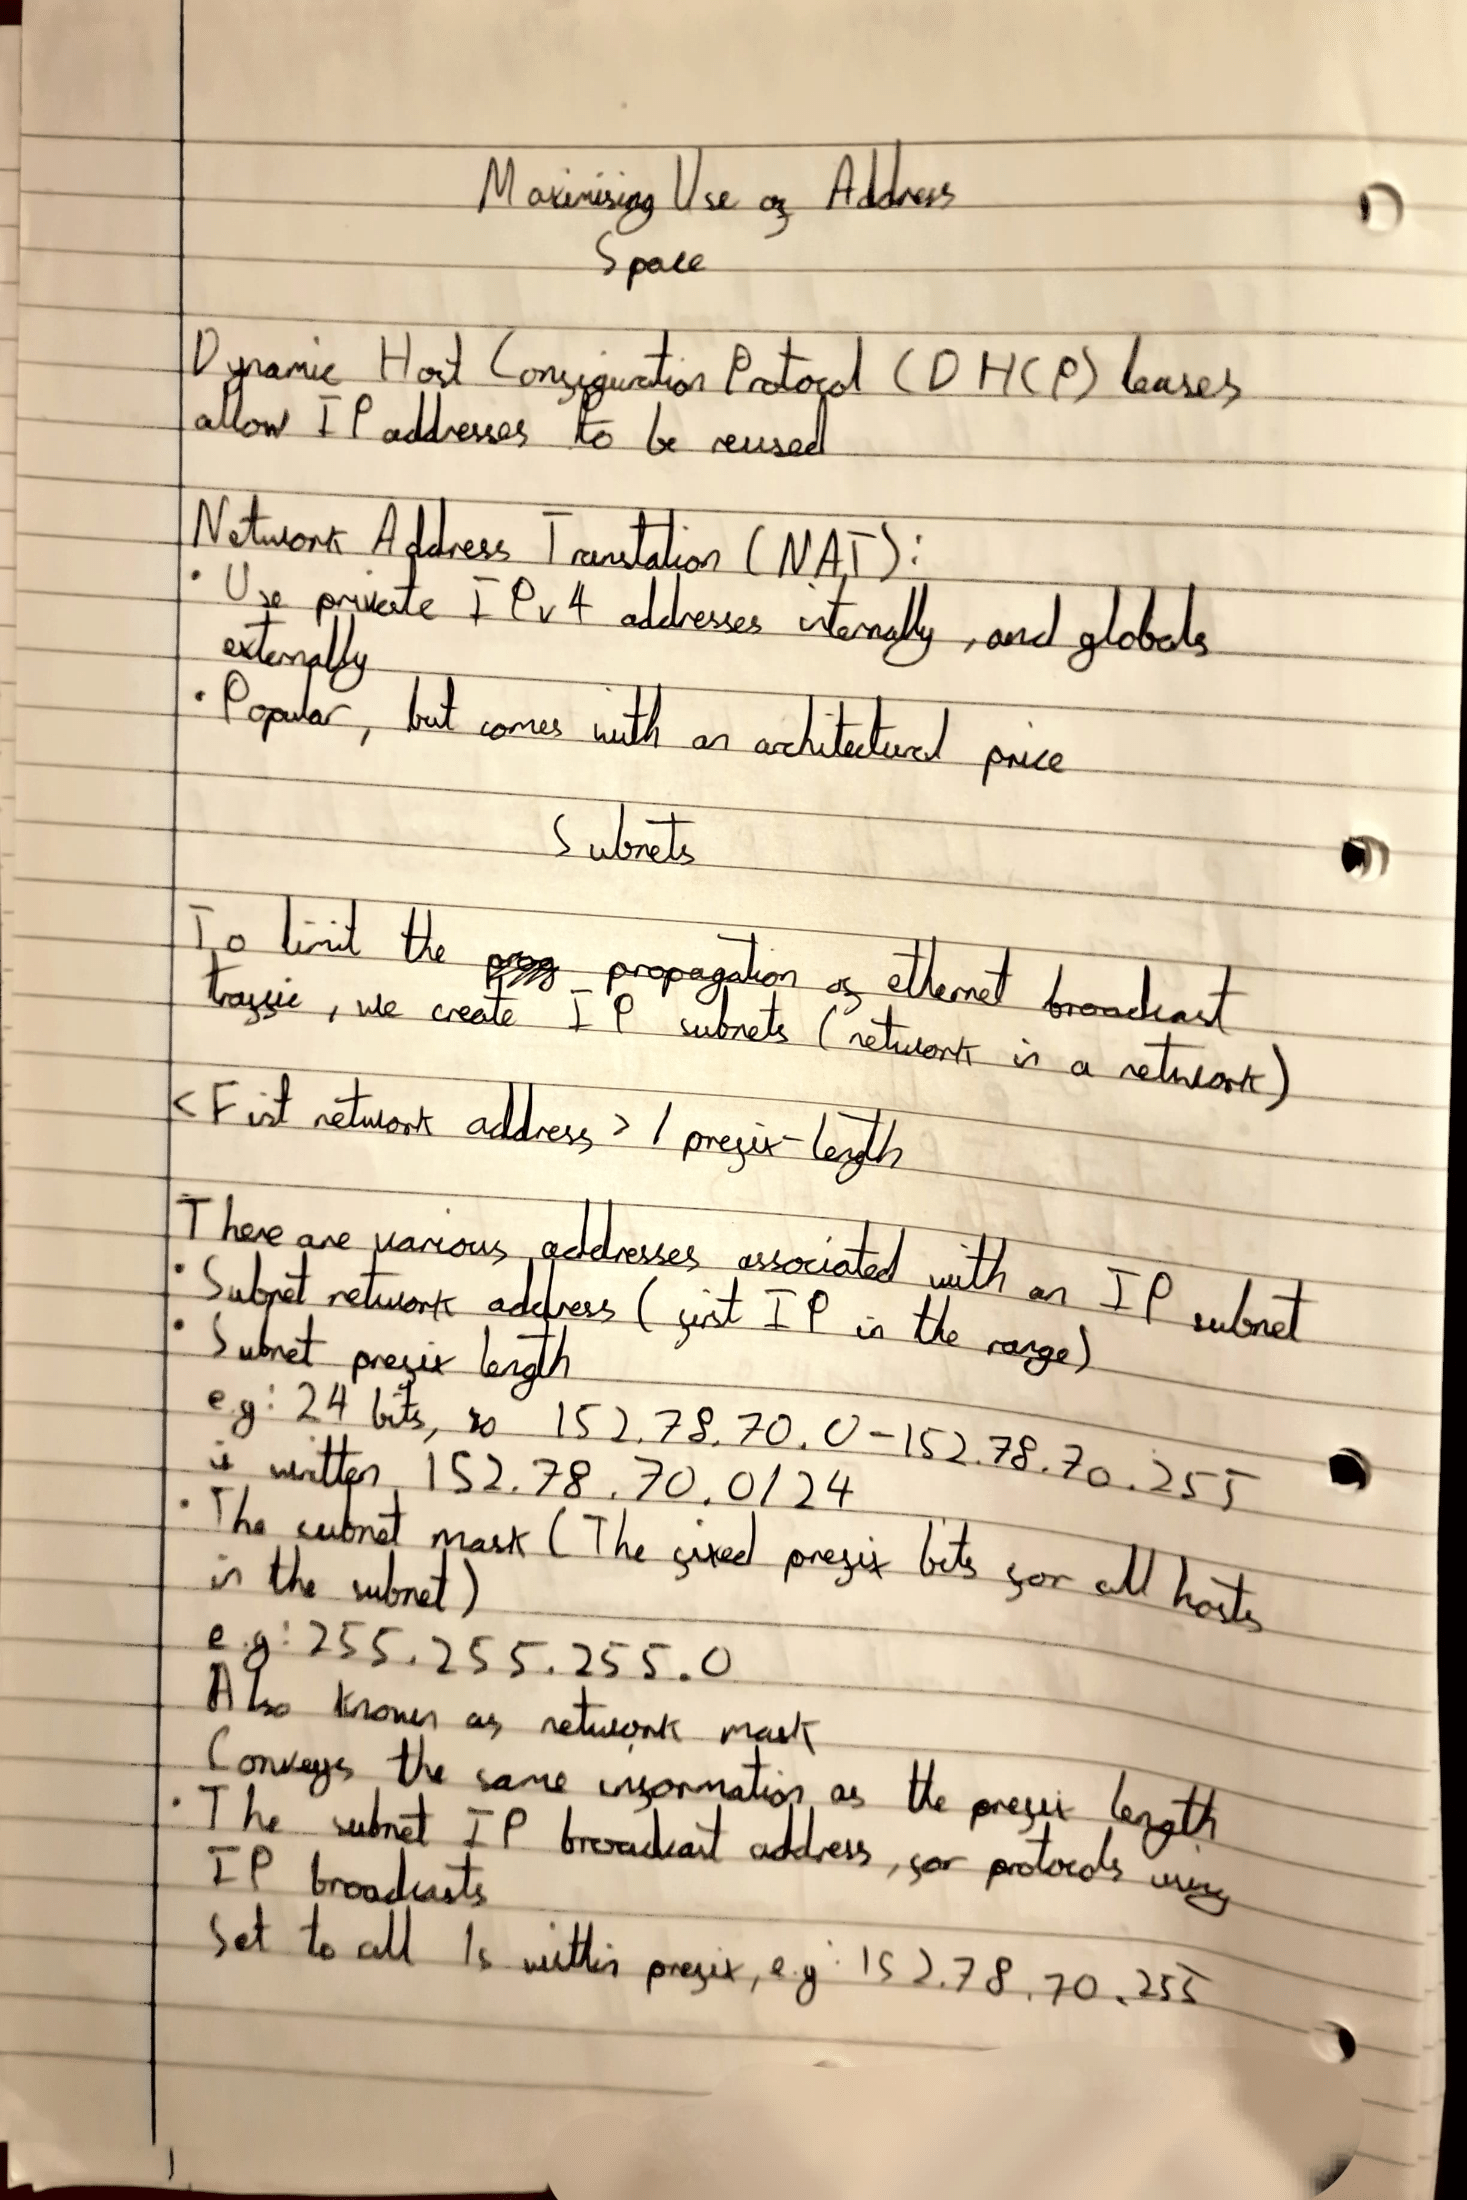 Maximising Use of Address
Space
Dynamic Host Configuration Protocol (DHCP) leases
allow IP addresses to be reused
Network Address Translation (NAT):
• Use private IPv4 addresses internally, and globals
externally
• Popular, but comes with an architectural price
Subnets
To limit the propagation of ethernet broadcast
traffic, we create IP subnets (network in a network)
<First network address> / prefix-length
There are various addresses associated with an IP subnet
• Subnet network address (first IP in the range)
• Subnet prefix length
e.g: 24 bits, so 152.78.70.0-152.78.70.255
is written 152.78.70.0/24
• The subnet mask (The fixed prefix bits for all hosts
in the subnet)
e.g: 255.255.255.0
Also known as network mask
Conveys the same information as the prefix length
• The subnet IP broadcast address, for protocols using
IP broadcasts
Set to all 1s within prefix, e.g: 152.78.70.255